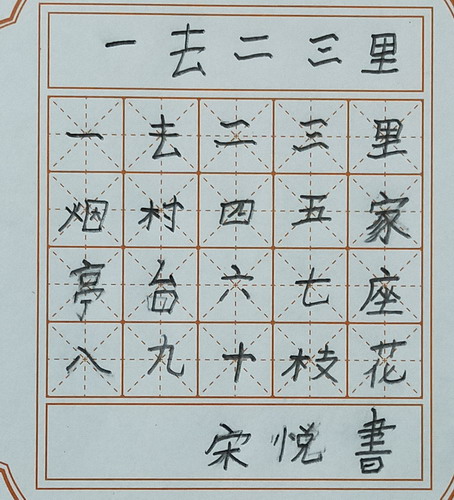 一去二三里
一去二三里
烟村四五家
亭台六七座
八九十枝花
宋悦書